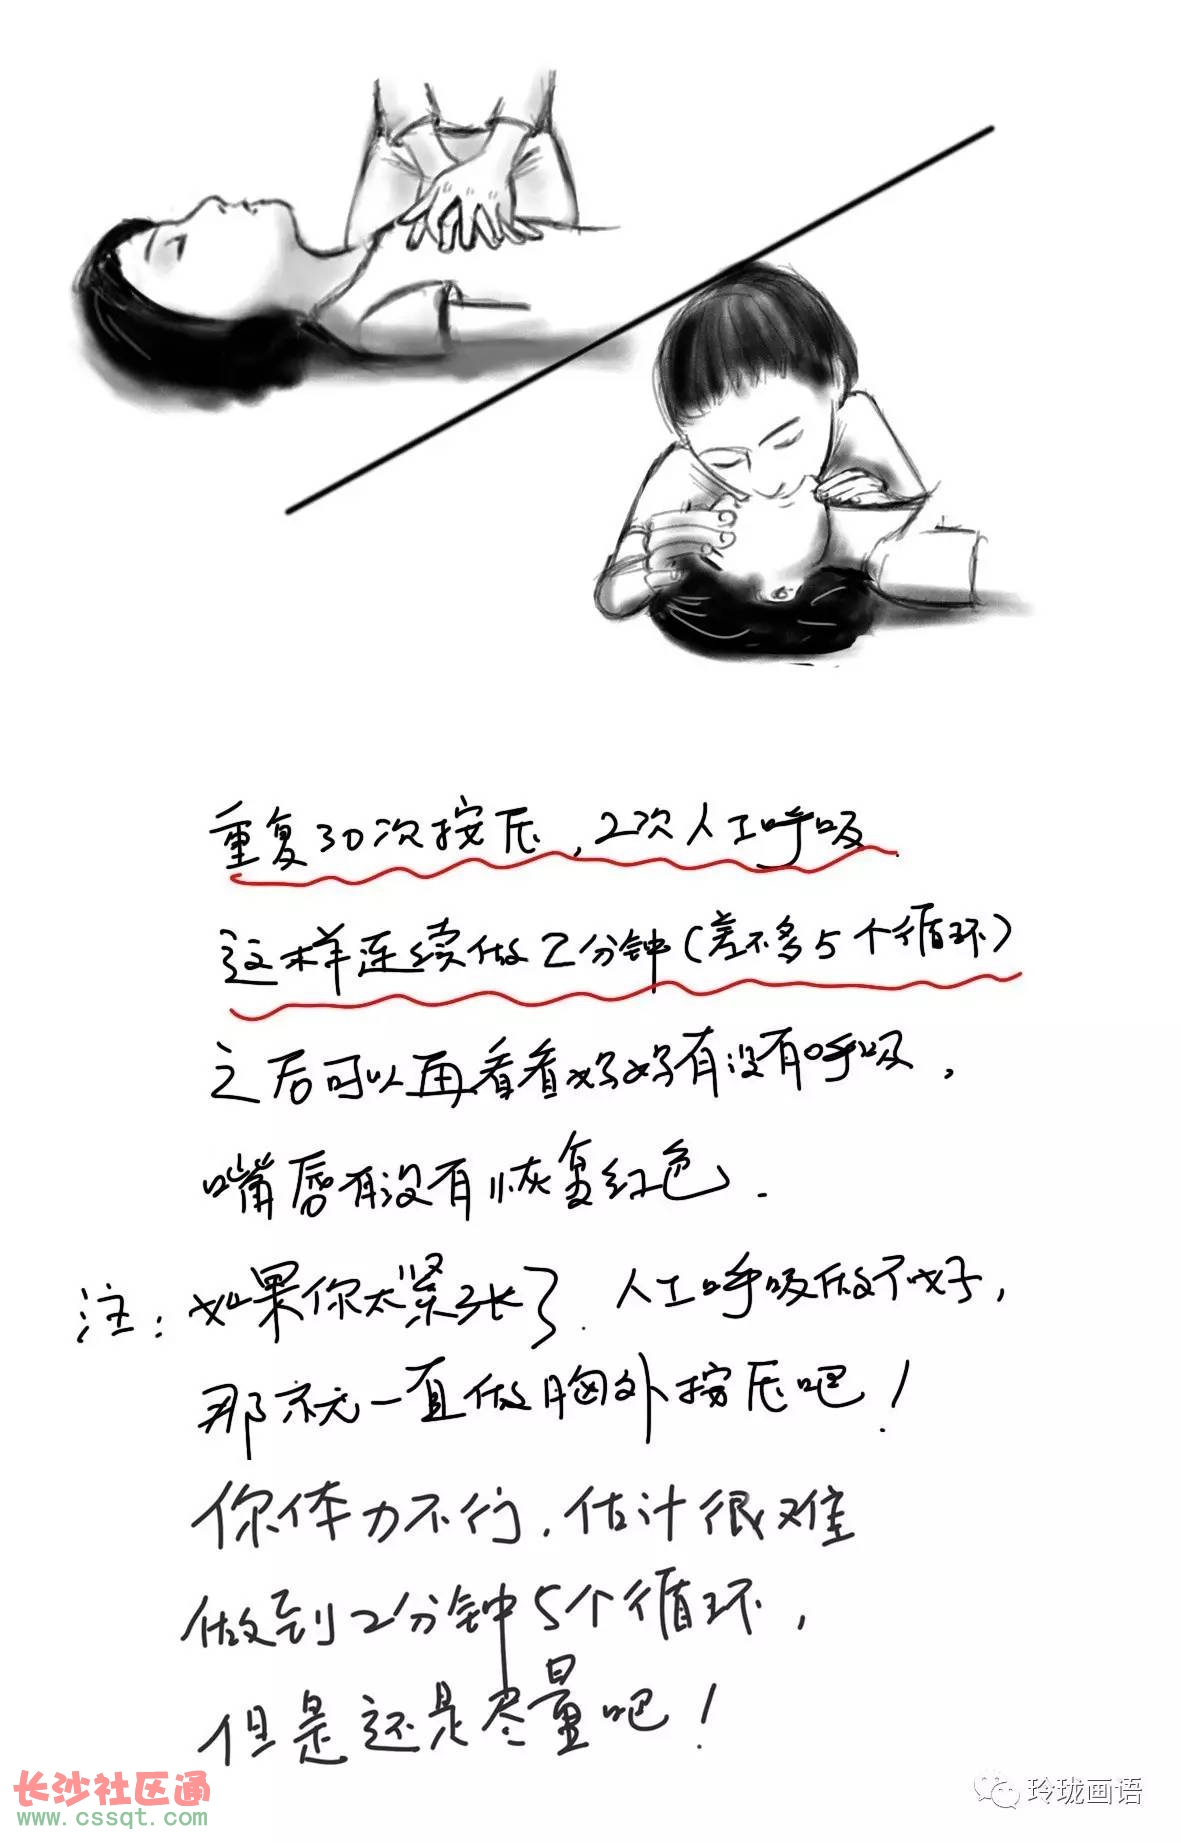 重复30次按压,2次人工呼吸.
这样连续做2分钟(差不多5个循环)
之后可以再看看好好有没有呼吸,
嘴唇有没有恢复红色.
注:如果你太紧张了.人工呼吸做不好,
那就一直做胸外按压吧!
你体力不行,估计很难
做到2分钟5个循环,
但是还是尽量吧!
长沙社区通
www.cssqt.com
玲珑画语